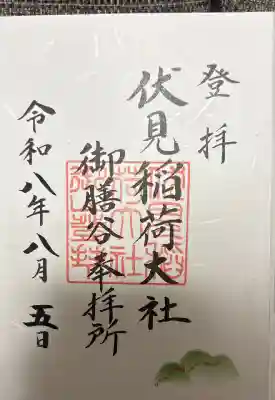 登拝
伏見稲荷大社
御膳谷奉拝所
令和八年八月五日